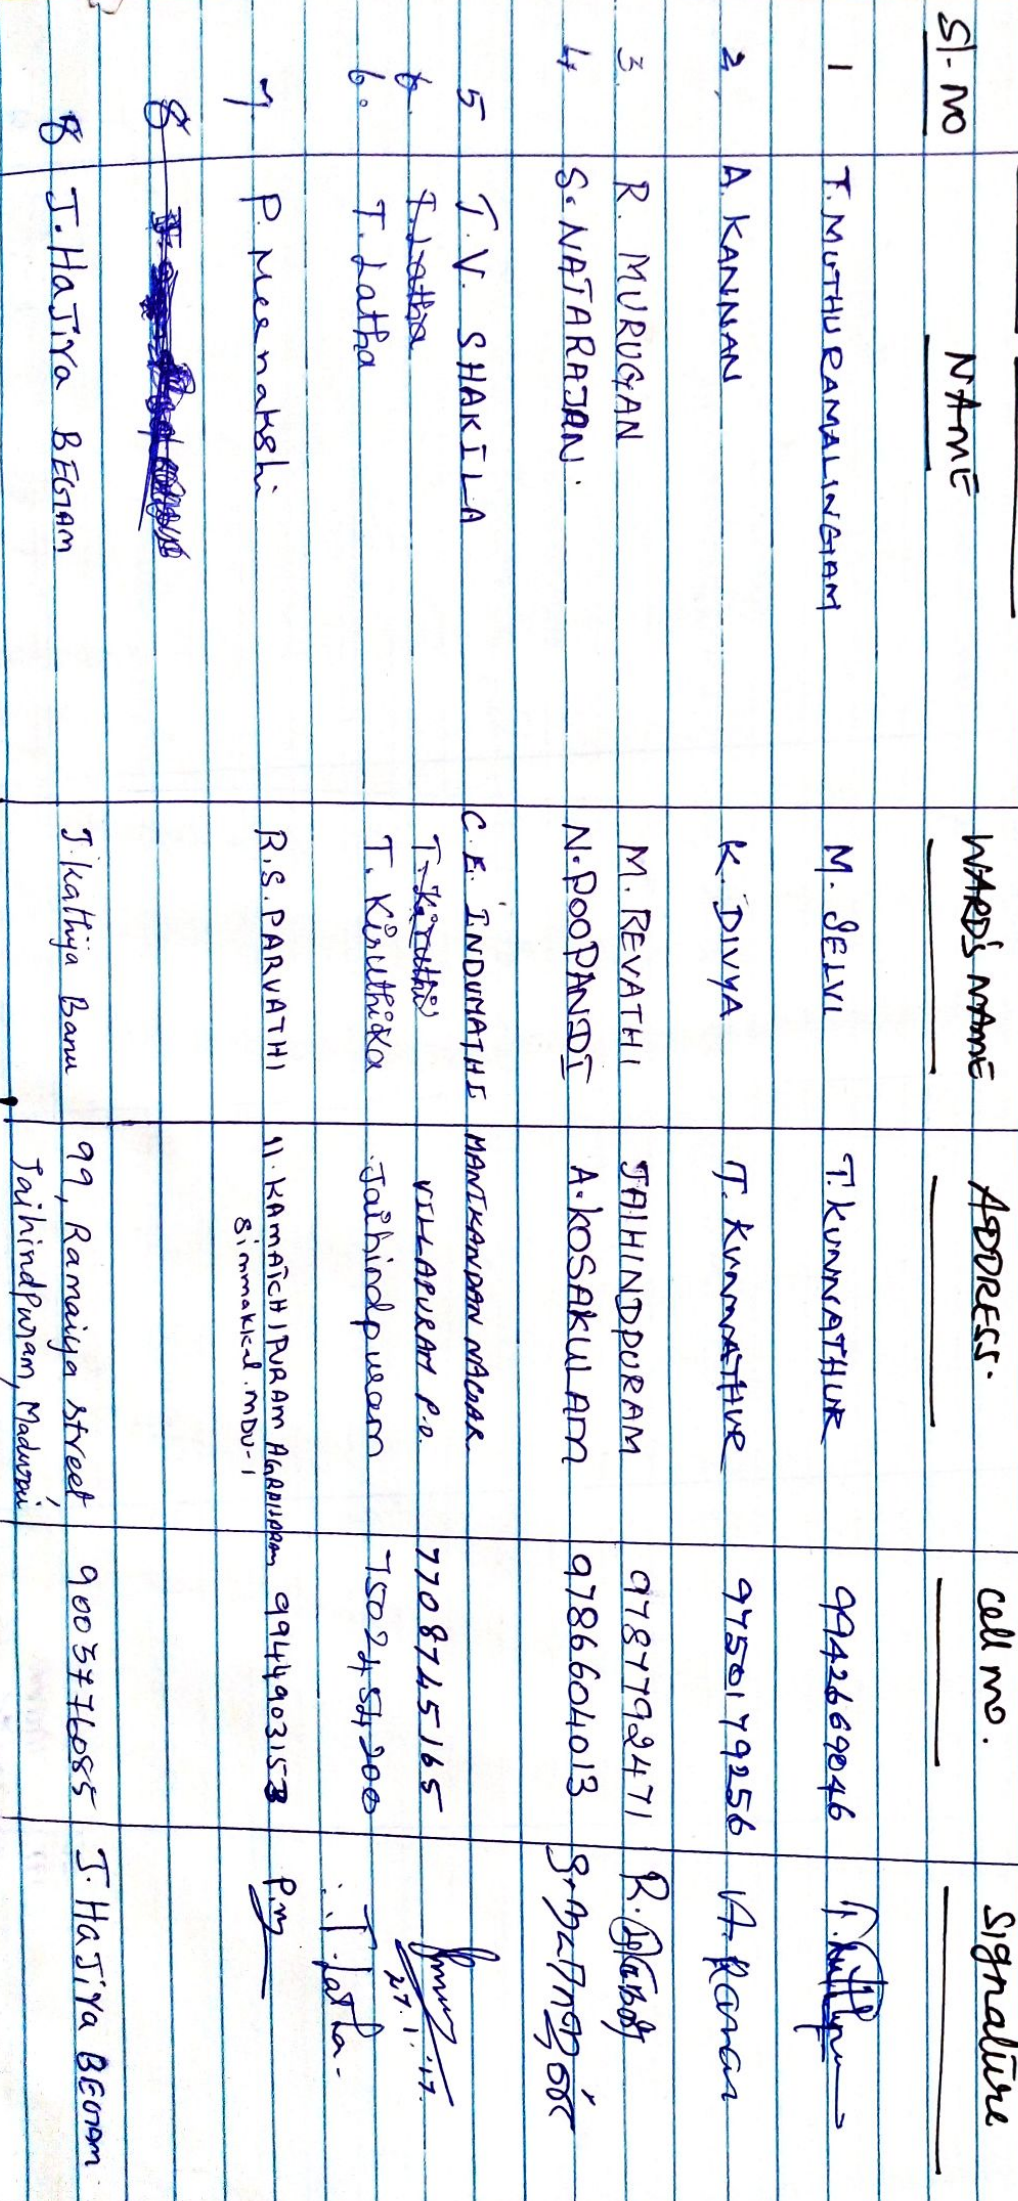 Sl. NO NAME WARD'S NAME ADDRESS. Cell no. Signature
1 T. MUTHURAMALINGAM M. SELVI T. KUNNATHUR 9942669046
2, A. KANNAN K. DIVYA T. KUNNATHUR 9750179256 A. Kannan
3. R. MURUGAN M. REVATHI JAIHINDPURAM 9787792471 R. முருகன்
4 S. NATARAJAN. N. POOPANDI A. KOSAKULAM 9786604013 S. நடராஜன்
5 T.V. SHAKILA C.E. INDUMATHI MANIKANDAN NAGAR.
6. T. Latha T. Kiruthi VILLAPURAM P.O. 7708745165 27.1.17.
6. T. Latha T. Kiruthika Jaihindpuram 7502454200 T. latha
7 P. Meenakshi R.S. PARVATHI 11. KAMATCHIPURAM AGRAHARAM 9944903153 P.M
Simmakkal. MDU-1
8
8 J. HaJiYa BEGAM J. Kathija Banu 99, Ramaiya street 9003776085 J. HaJiYa BEGAM
Jaihindpuram, Madurai